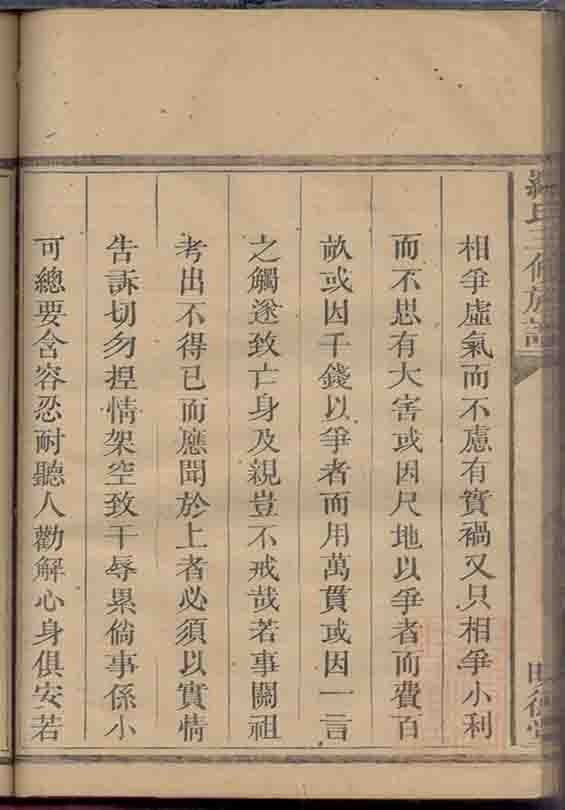 氏三修族譜
相爭虛氣而不慮有實禍又只相爭小利
而不思有大害或因尺地以爭者而費百
畝或因千錢以爭者而用萬貫或因一言
之觸遂致亡身及親豈不戒哉若事關祖
考出不得已而應聞於上者必須以實情
告訴切勿捏情架空致干辱累倘事係小
可總要含容忍耐聽人勸解心身俱安若